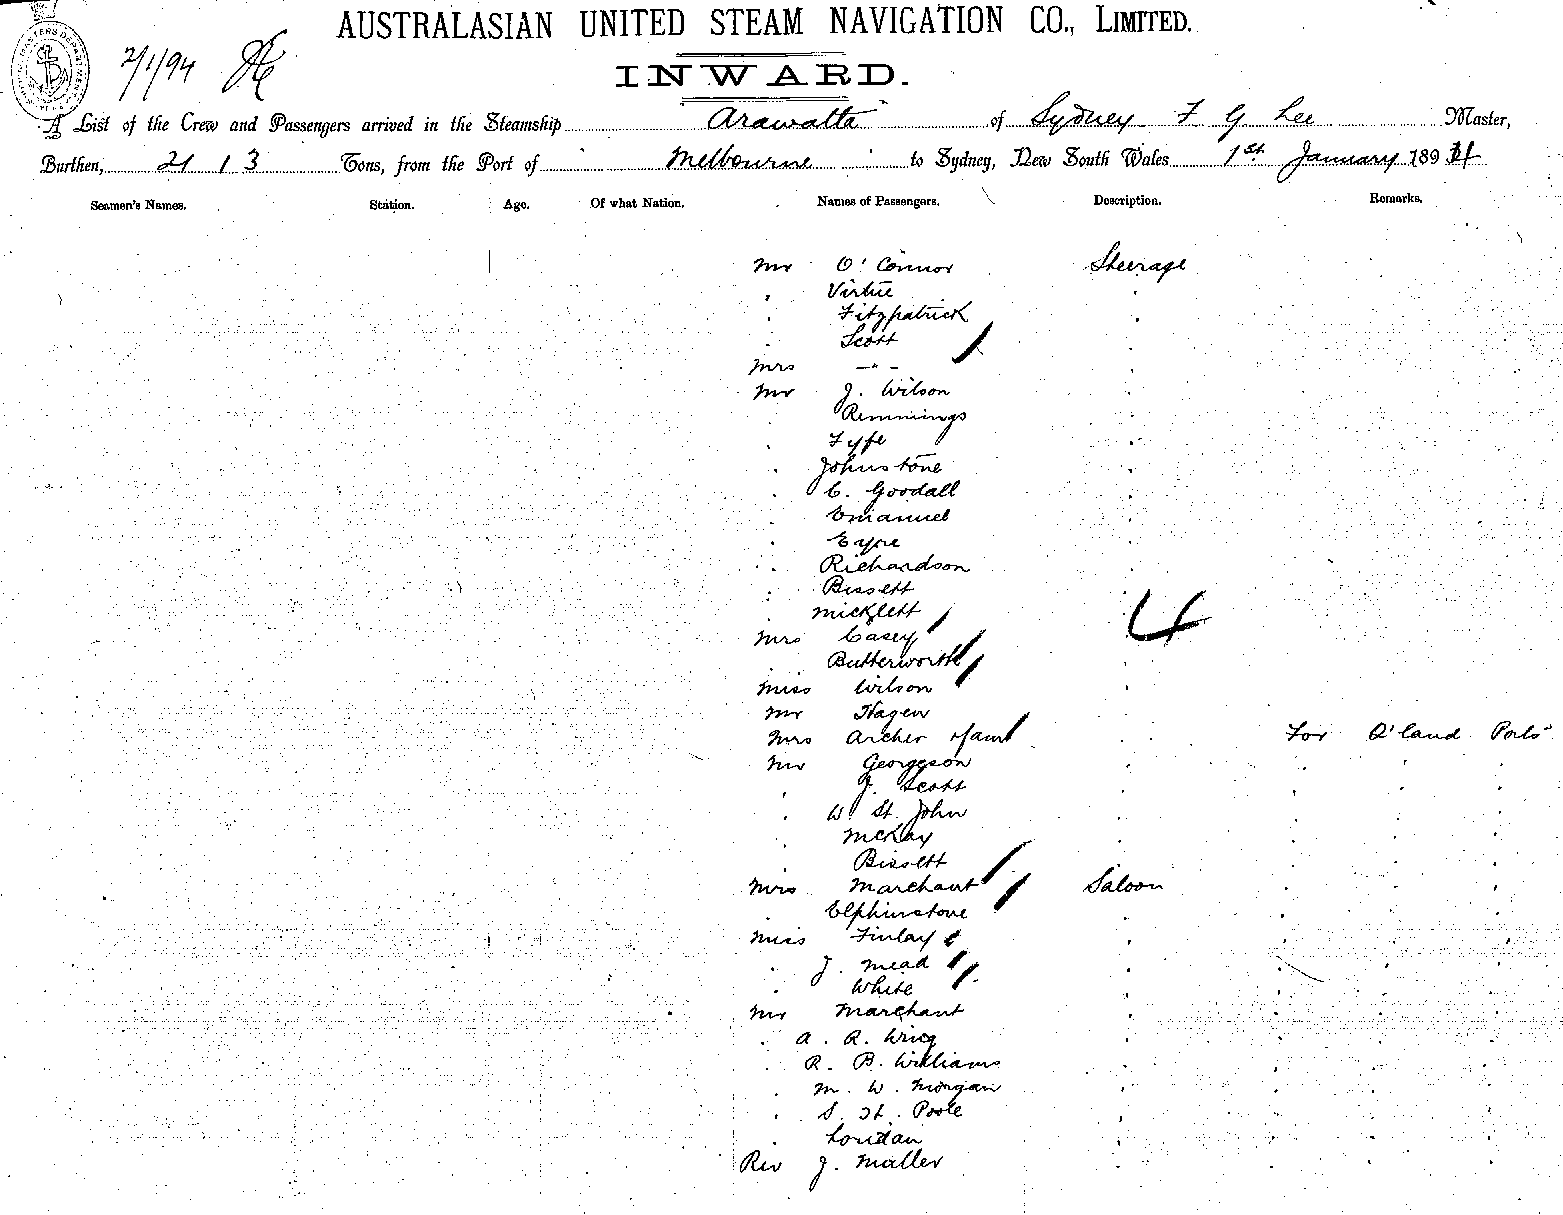 AUSTRALASIAN UNITED STEAM NAVIGATION CO., LIMITED.
2/1/94
INWARD.
A List of the Crew and Passengers arrived in the Steamship "Arawatta" of Sydney F G Lee Master,
Burthen, 2113 Tons, from the Port of Melbourne to Sydney, New South Wales 1st January 1894
Seamen's Names. Station. Age. Of what Nation. Names of Passengers. Description. Remarks.
Mr O'Connor Steerage
" Virtue "
" Fitzpatrick "
" Scott "
Mrs —"— "
Mr J. Wilson "
" Remmings "
" Fyfe "
" Johnstone "
" C. Goodall "
" Emanuel "
" Eyre "
" Richardson "
" Bissett "
" Micklett "
Mrs Casey 4
" Butterworth "
Miss Wilson "
Mr Hagen "
Mrs Archer " For Q'land Ports
Mr Georgeson " " " "
" J. Scott " " " "
" W. St. John " " " "
" McKay " " " "
" Bissett " " " "
Mrs Marchant Saloon " " "
" Elphinstone " " " "
Miss Finlay " " " "
" J. Mead " " " "
" White " " " "
Mr Marchant " " " "
" A. R. " " " "
" R. B. Williams " " " "
" M. W. Morgan " " " "
" S. H. Poole " " " "
" Loridan " " " "
Rev J. Maller " " " "